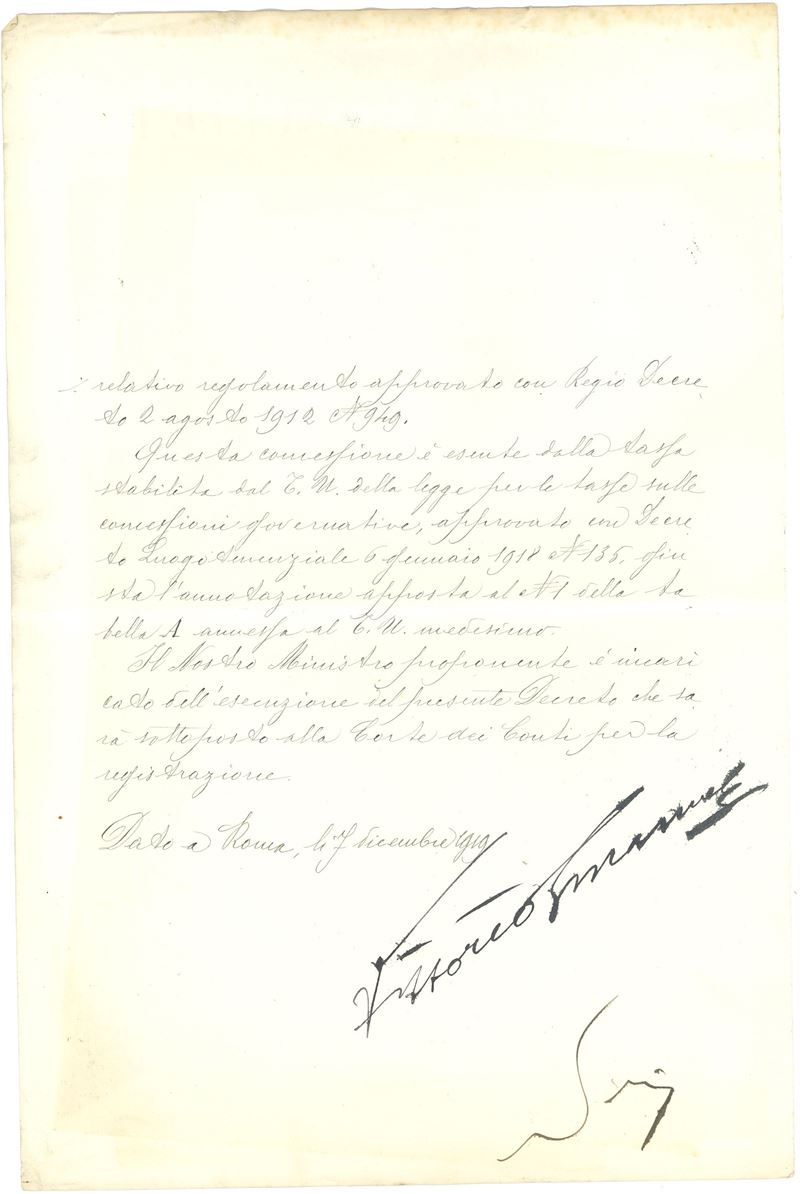 ./. relativo regolamento approvato con Regio Decre
to 2 agosto 1912 N 949.
Questa concessione è esente dalla tassa
stabilita dal T. U. della legge per le tasse sulle
concessioni governative, approvato con Decre
to Luogotenenziale 6 gennaio 1918 N 135, giu
sta l'annotazione apposta al N 1 della ta
bella A annessa al T. U. medesimo.
Il Nostro Ministro proponente è incari
cato dell'esenzione del presente Decreto che sa
rà sottoposto alla Corte dei Conti per la
registrazione.
Dato a Roma, li 7 dicembre 1919
Vittorio Emanuele